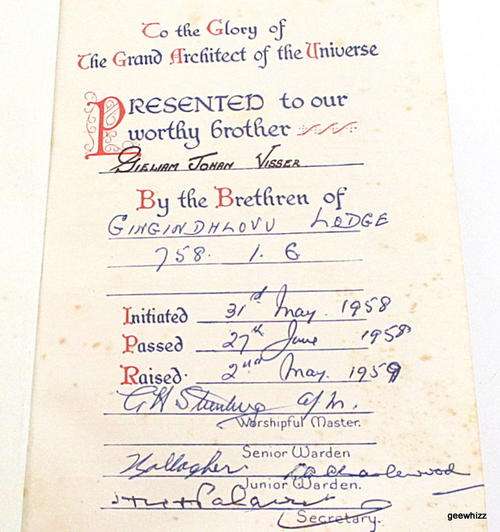 To the Glory of
The Grand Architect of the Universe
PRESENTED to our
worthy brother
GIELIAM JOHAN VISSER
By the Brethren of
GINGINDHLOVU LODGE
758. I. C
Initiated 31st May. 1958
Passed 27th June 1958
Raised. 2nd May. 1959
Worshipful Master.
Senior Warden
Gallagher
Junior Warden.
Secretary.
geewhizz